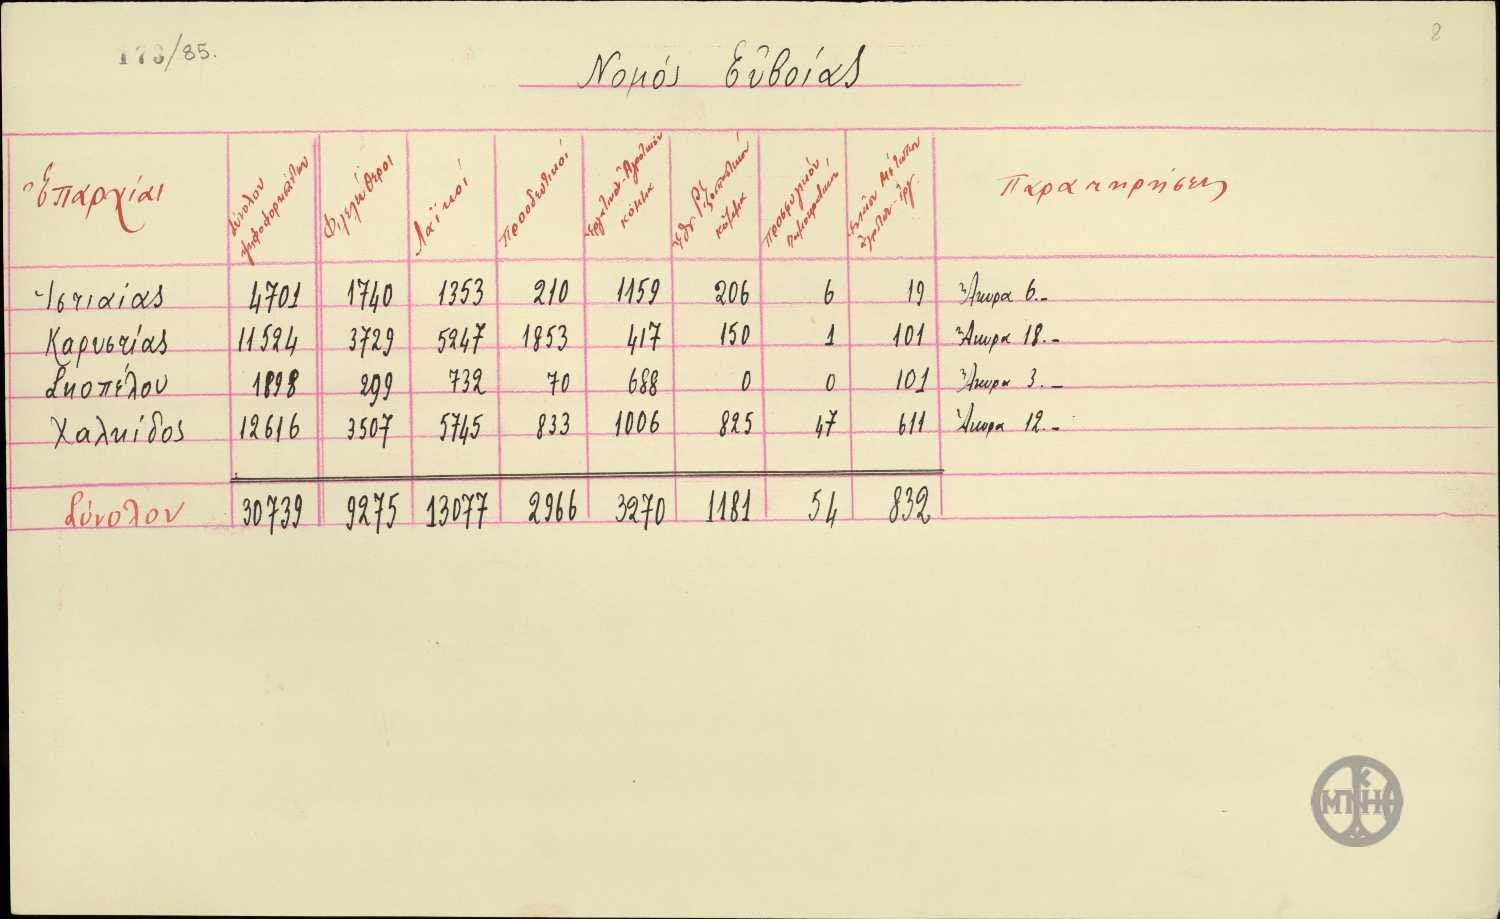 173/85.
8
Νομός Εὐβοίας
Ἐπαρχίαι Σύνολον ψηφοφορησάντων Φιλελεύθεροι Λαϊκοί Προοδευτικοί Ἐργατικὸν-Ἀγροτικὸν κόμμα Ἐθν. Ριζοσπαστικὸν κόμμα Προσφυγικὸν Παρατηρήσεις
Ἰστιαίας 4701 1740 1353 210 1159 206 6 19 Ἄκυρα 6.-
Καρυστίας 11524 3729 5247 1853 417 150 1 101 Ἄκυρα 18.-
Σκοπέλου 1898 299 732 70 688 0 0 101 Ἄκυρα 3.-
Χαλκίδος 12616 3507 5745 833 1006 825 47 611 Ἄκυρα 12.-
Σύνολον 30739 9275 13077 2966 3270 1181 54 832
ΜΠΚΗ